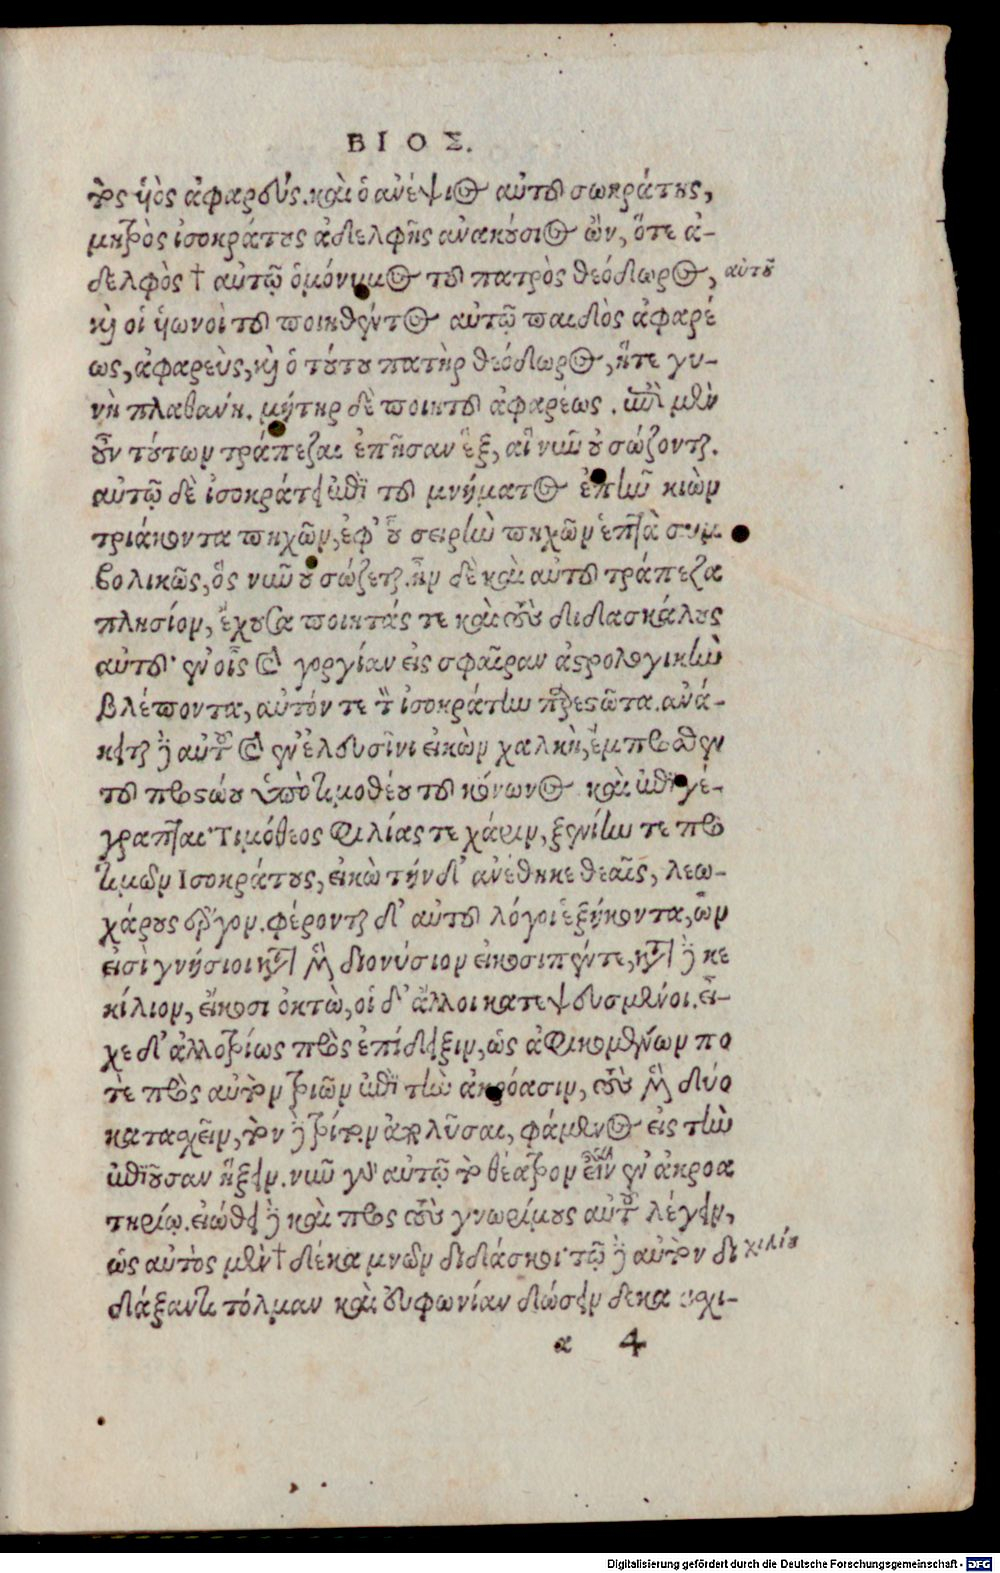 ΒΙΟΣ.
τος υἱὸς ἀφαρεύς. καὶ ὁ ἀνέψιος αὐτοῦ σωκράτης,
μητρὸς ἰσοκράτους ἀδελφῆς ἀνακούσιος ὢν, ὅτε ἀ-
δελφὸς † αὐτῷ ὁμόνυμος τοῦ πατρὸς θεόδωρος, αὐτοῦ
καὶ οἱ υἱωνοὶ τοῦ ποιηθέντος αὐτῷ παιδὸς ἀφαρέ
ως, ἀφαρεὺς, καὶ ὁ τούτου πατὴρ θεόδωρος, ἥτε γυ-
νὴ πλαθανή. μήτηρ δὲ ποιητοῦ ἀφαρέως. ἐπὶ μὲν
οὖν τούτων τράπεζαι ἐπῆσαν ἓξ, αἳ νῦν οὐ σώζονται.
αὐτῷ δὲ ἰσοκράτει ἐπὶ τοῦ μνήματος ἐπῆν κιὼν
τριάκοντα πηχῶν, ἐφ' οὗ σειρὴν πηχῶν ἑπτὰ συμ
βολικῶς, ὃς νῦν οὐ σώζεται. ἦν δὲ καὶ αὐτοῦ τράπεζα
πλησίον, ἔχουσα ποιητάς τε καὶ τοὺς διδασκάλους
αὐτοῦ· ἐν οἷς καὶ γοργίαν εἰς σφαῖραν ἀστρολογικὴν
βλέποντα, αὐτόν τε τὸν ἰσοκράτην παρεστῶτα. ἀνά-
κειται δὲ αὐτοῦ καὶ ἐν ἐλευσῖνι εἰκὼν χαλκὴ, ἔμπροσθεν
τοῦ προστώου ὑπὸ τιμοθέου τοῦ κόνωνος καὶ ἐπιγέ-
γραπται· Τιμόθεος φιλίας τε χάριν, ξενίην τε προ
τιμῶν Ἰσοκράτους, εἰκὼ τήνδ' ἀνέθηκε θεαῖς, λεω-
χάρους ἔργον. φέρονται δ' αὐτοῦ λόγοι ἑξήκοντα, ὧν
εἰσὶ γνήσιοι κατὰ μὲν διονύσιον εἰκοσιπέντε, κατὰ δὲ κε
κίλιον, εἴκοσι ὀκτὼ, οἱ δ' ἄλλοι κατεψευσμένοι. εἶ-
χε δ' ἀλλοτρίως πρὸς ἐπίδειξιν, ὡς ἀφικομένων πο
τὲ πρὸς αὐτὸν τριῶν ἐπὶ τὴν ἀκρόασιν, τοὺς μὲν δύο
κατασχεῖν, τὸν δὲ τρίτον ἀπολῦσαι, φάμενος εἰς τὴν
ἐπιοῦσαν ἥξειν. νῦν γὰρ αὐτῷ τὸ θέατρον εἶναι ἐν ἀκροα
τηρίῳ. εἰώθει δὲ καὶ πρὸς τοὺς γνωρίμους αὐτοῦ λέγειν,
ὡς αὐτὸς μὲν † δέκα μνῶν διδάσκοι· τῷ δὲ αὐτὸν δι χιλίων
διάξαντι τόλμαν καὶ εὐφωνίαν δώσειν δεκα χι-
α 4
Digitalisierung gefördert durch die Deutsche Forschungsgemeinschaft - DFG